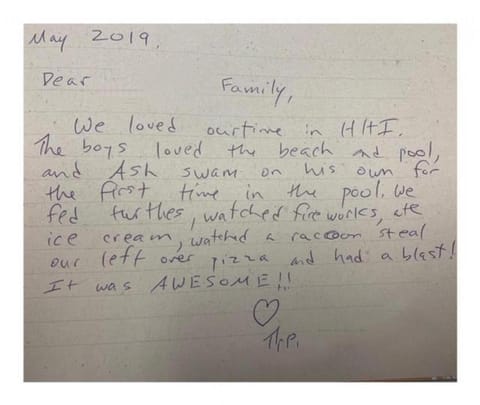 May 2019.
Dear Family,
We loved our time in HHI.
The boys loved the beach and pool,
and Ash swam on his own for
the first time in the pool. We
fed turtles, watched fireworks, ate
ice cream, watched a raccoon steal
our left over pizza and had a blast!
It was AWESOME!!
♡